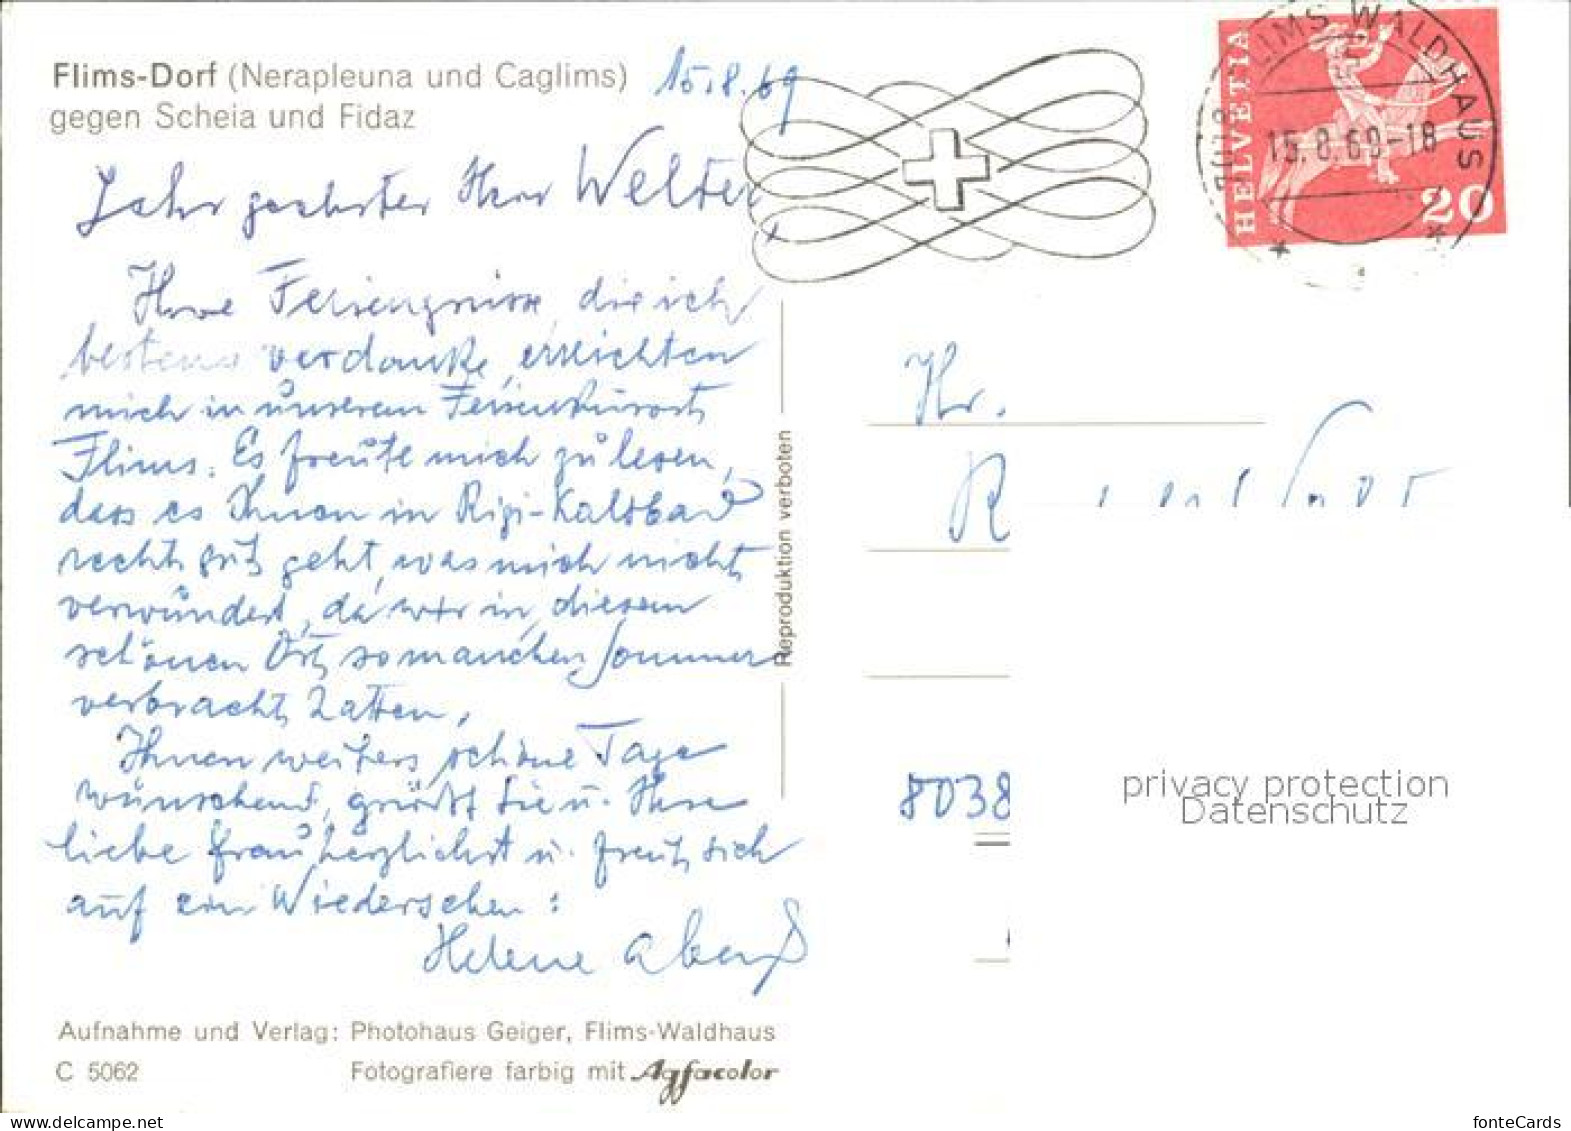 Flims-Dorf (Nerapleuna und Caglims)
gegen Scheia und Fidaz
15.8.69
Sehr geehrter Herr Welter,
Ihre Feriengrüsse, die ich
bestens verdanke, erreichten
mich in unserem Ferienkurort
Flims. Es freute mich zu lesen,
dass es Ihnen in Rigi-Kaltbad
recht gut geht, was mich nicht
verwundert, da wir in diesem
schönen Ort so manchen Sommer
verbracht hatten.
Ihnen weiters schöne Tage
wünschend, grüsst Sie u. Ihre
liebe Frau herzlichst u. freut sich
auf ein Wiedersehen:
Helene
Aufnahme und Verlag: Photohaus Geiger, Flims-Waldhaus
C 5062 Fotografiere farbig mit Agfacolor
Reproduktion verboten
FLIMS WALDHAUS
15.8.69-18
HELVETIA
20
Hr.
8038
privacy protection
Datenschutz
fonteCards